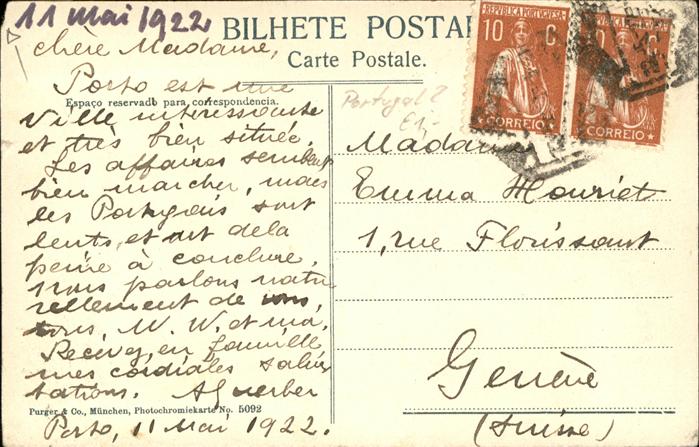 11 Mai 1922
BILHETE POSTAL
Carte Postale.
REPUBLICA PORTUGUESA
10 C.
CORREIO
REPUBLICA PORTUGUESA
C.
CORREIO
Chère Madame,
Porto est une
Espaço reservado para correspondencia.
ville intéressante
et très bien située.
Les affaires semblent
bien marcher, mais
les Portugais sont
lents, et ont de la
peine à conclure.
Nous parlons natu
rellement de vous
tous, W. W. et moi.
Recevez, en famille
mes cordiales salu
tations. AGuerber
Purger & Co., München, Photochromiekarte No. 5092
Porto, 11 Mai 1922.
Portugal?
Madame
Emma Mouriet
1, rue Florissant
Genève
(Suisse)